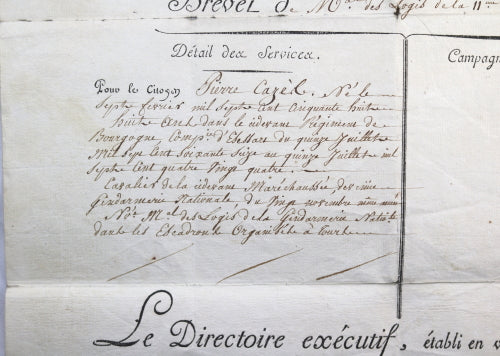 Brevet de M.al des Logis de la 11me
Détail des Services.
Campagn
Pour le Citoyen Pierre Cazès. Né le
Sept fevrier mil Sept Cent Cinquante huit
huit ans dans le cidevant Régiment de
Bourgogne Comp.e d'Essars du quinze Juillet
Mil Sept Cent Soixante Seize au quinze Juillet mil
Sept Cent quatre Vingt quatre.
Cavalier de la cidevant Maréchaussée devenue
Gendarmerie Nationale du Vingt novembre même année
Né Mal des Logis de la Gendarmerie Natale
dans les Escadrons Organisés à Tours.
Le Directoire exécutif, établi en v